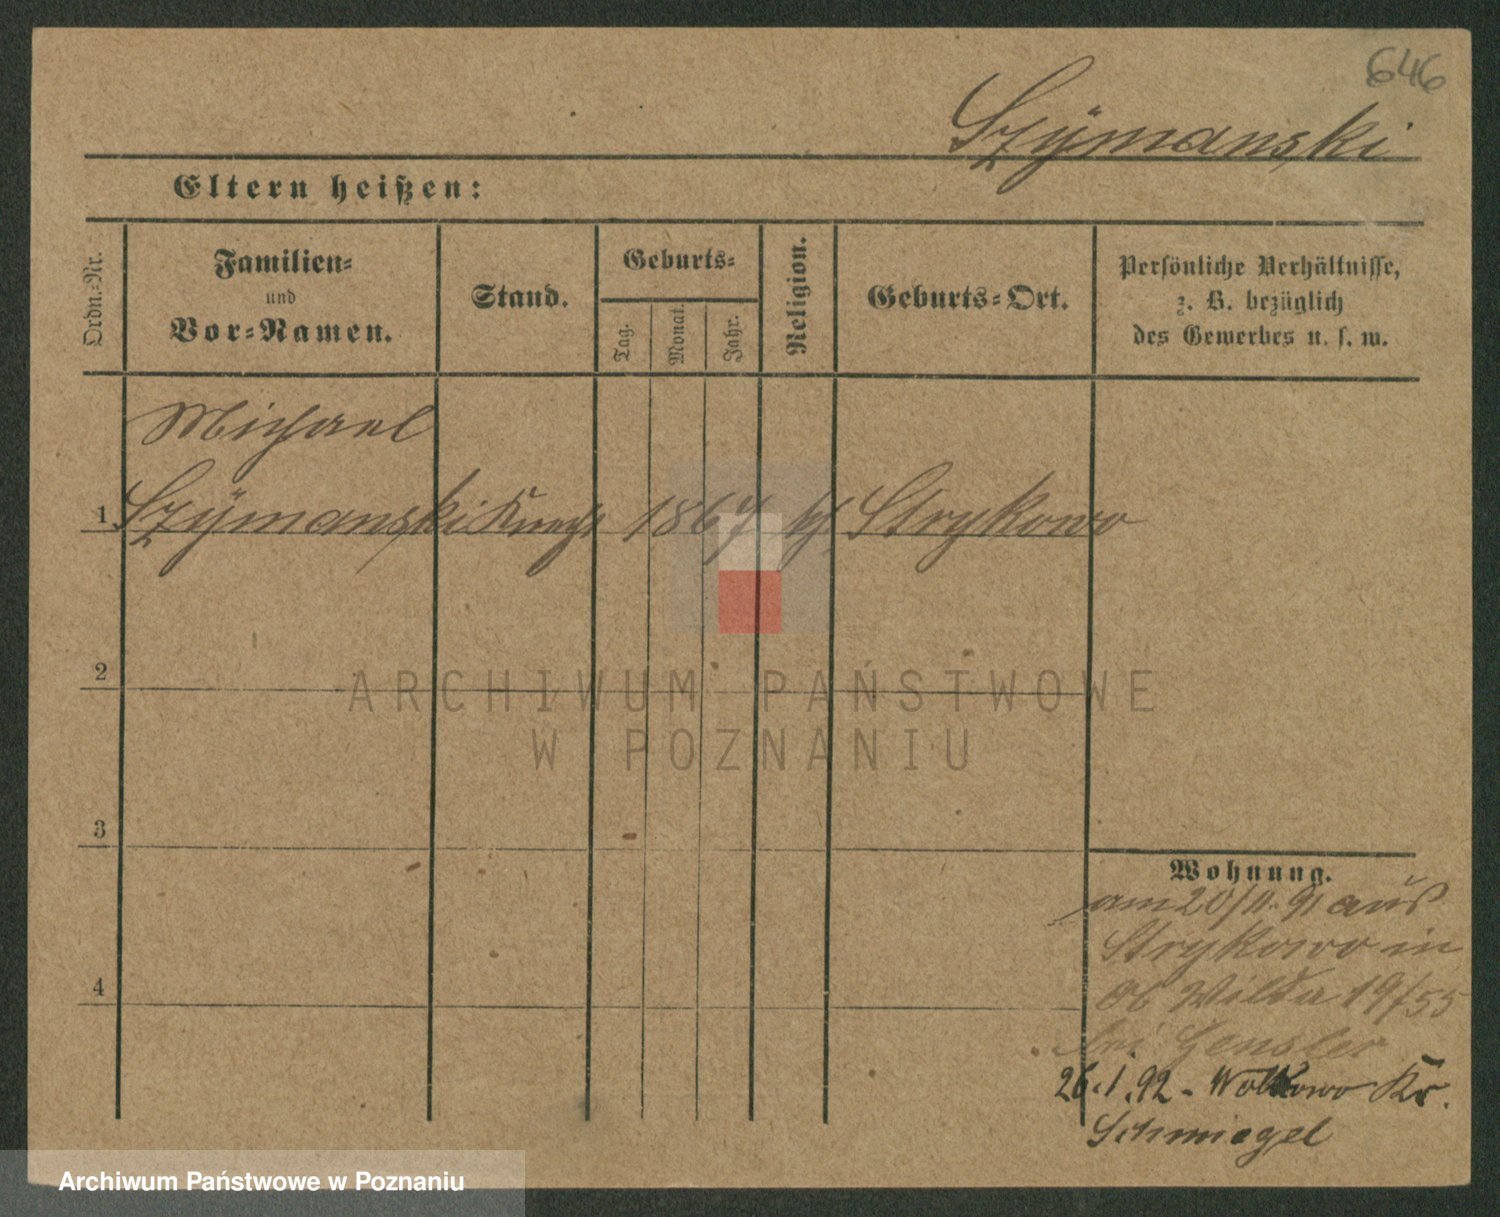 646
Szÿmanski
Eltern heißen:
Ordn.-Nr.
Familien-
und
Vor-Namen.
Stand.
Geburts-
Tag.
Monat.
Jahr.
Religion.
Geburts-Ort.
Persönliche Verhältnisse,
z. B. bezüglich
des Gewerbes u. s. w.
Michael
1 Szÿmanski Knecht 1867 kf Strykowo
2
ARCHIWUM PAŃSTWOWE
W POZNANIU
3
Wohnung.
am 20/11. 91 aus
Strykowo in
4
Ob Wilda 19/55
bei Gensler
26.1.92 - Wolkowo Kr.
Schmiegel
Archiwum Państwowe w Poznaniu